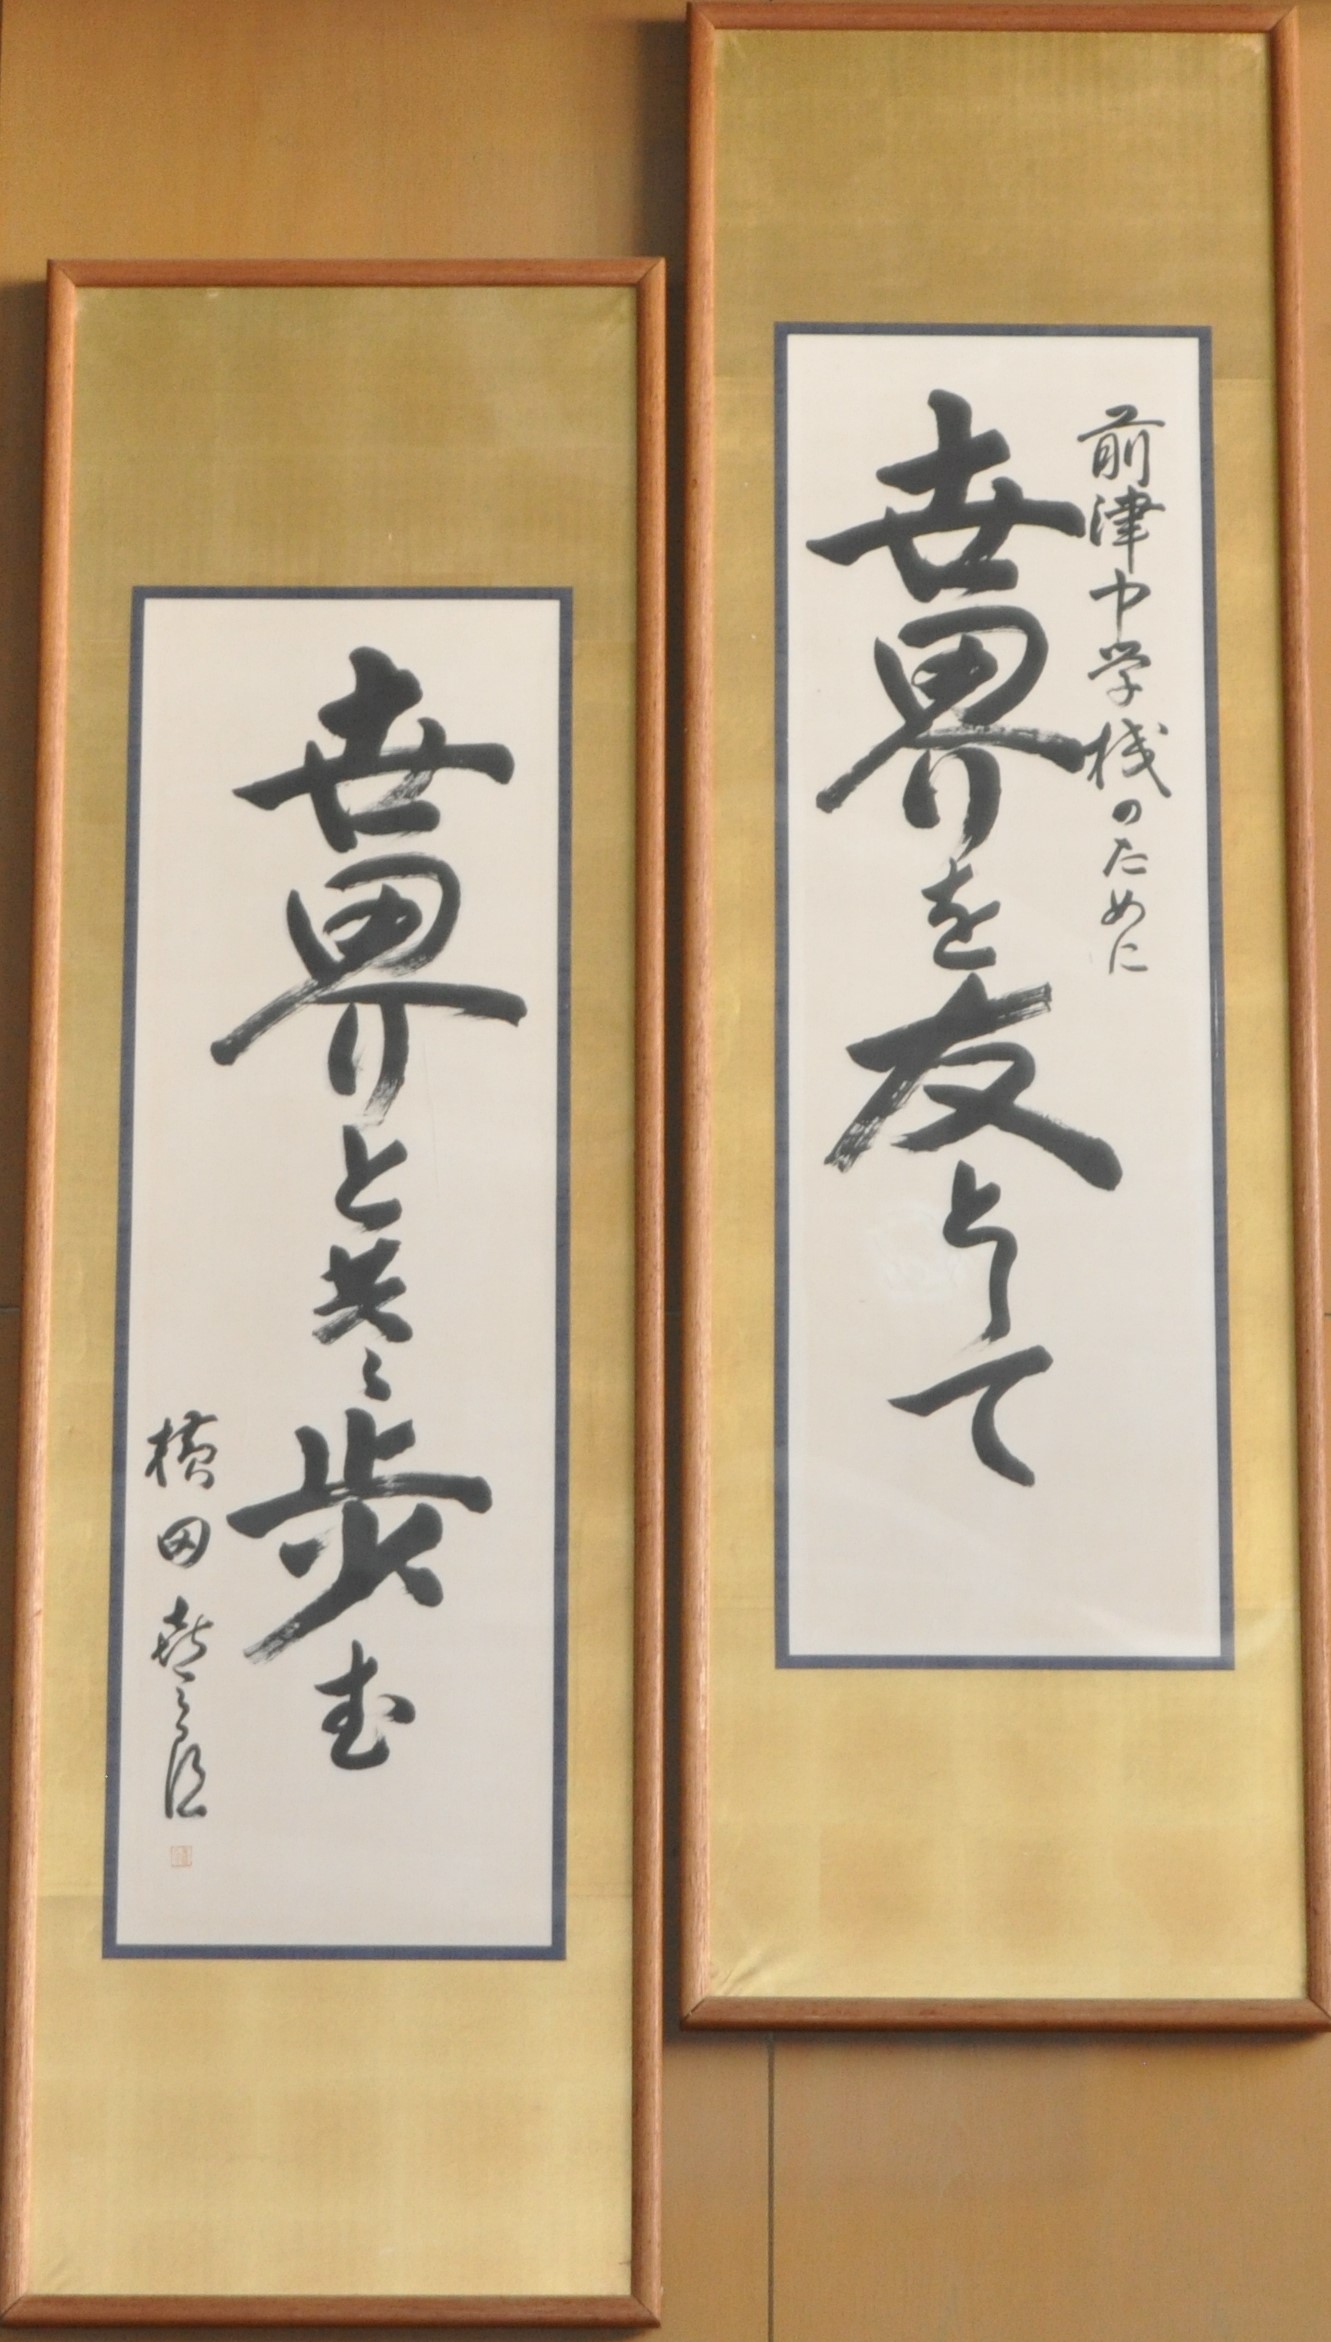 前津中学校のために
世界を友として
世界と共に歩む
横田喜三郎